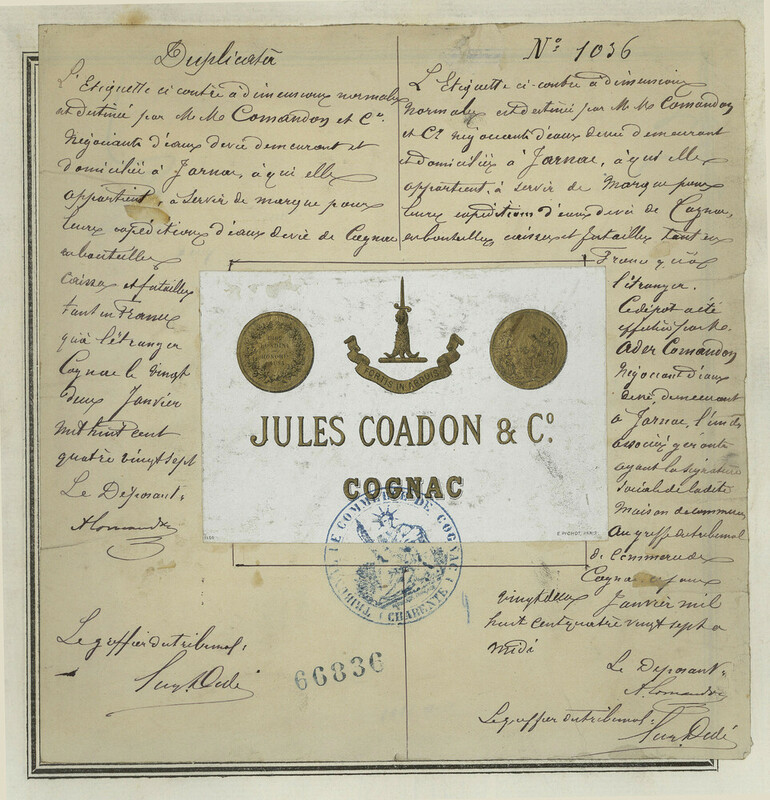 Duplicata
L'Etiquette ci contre a dimensions normales
est destinée par M.M. Comandon et Cie.
Négociants d'eaux de vie demeurant et
domiciliés à Jarnac, à qui elle
appartient, à servir de marque pour
leurs expéditions d'eaux de vie de Cognac
en bouteilles
caisses et futailles
tant en France
qu'à l'étranger
Cognac le vingt
deux Janvier
mil huit cent
quatre vingt sept
Le Déposant:
A Comandon
Le greffier du tribunal:
66836
No. 1036
L'Etiquette ci-contre à dimensions
normales est destinée par M.M. Comandon
et Cie négociants d'eaux de vie demeurant
et domiciliés à Jarnac, à qui elle
appartient, à servir de marque pour
leurs expéditions d'eaux de vie de Cognac,
en bouteilles caisses et futailles tant en
France qu'à
l'étranger.
Ce dépôt a été
effectué par Mr.
Ader Comandon
Négociant d'eaux
de vie, demeurant
à Jarnac, l'un des
associés gérants
ayant la signature
sociale de la dite
maison de commerce
Au greffe du tribunal
de commerce de
Cognac, ce jour
vingt deux Janvier mil
huit cent quatre vingt sept a
midi
Le Déposant:
A. Comandon
Le greffier du tribunal:
FORTIS IN ARDUIS
JULES COADON & Co.
COGNAC
E. PICHOT, PARIS
TRIBUNAL DE COMMERCE DE COGNAC
(CHARENTE)